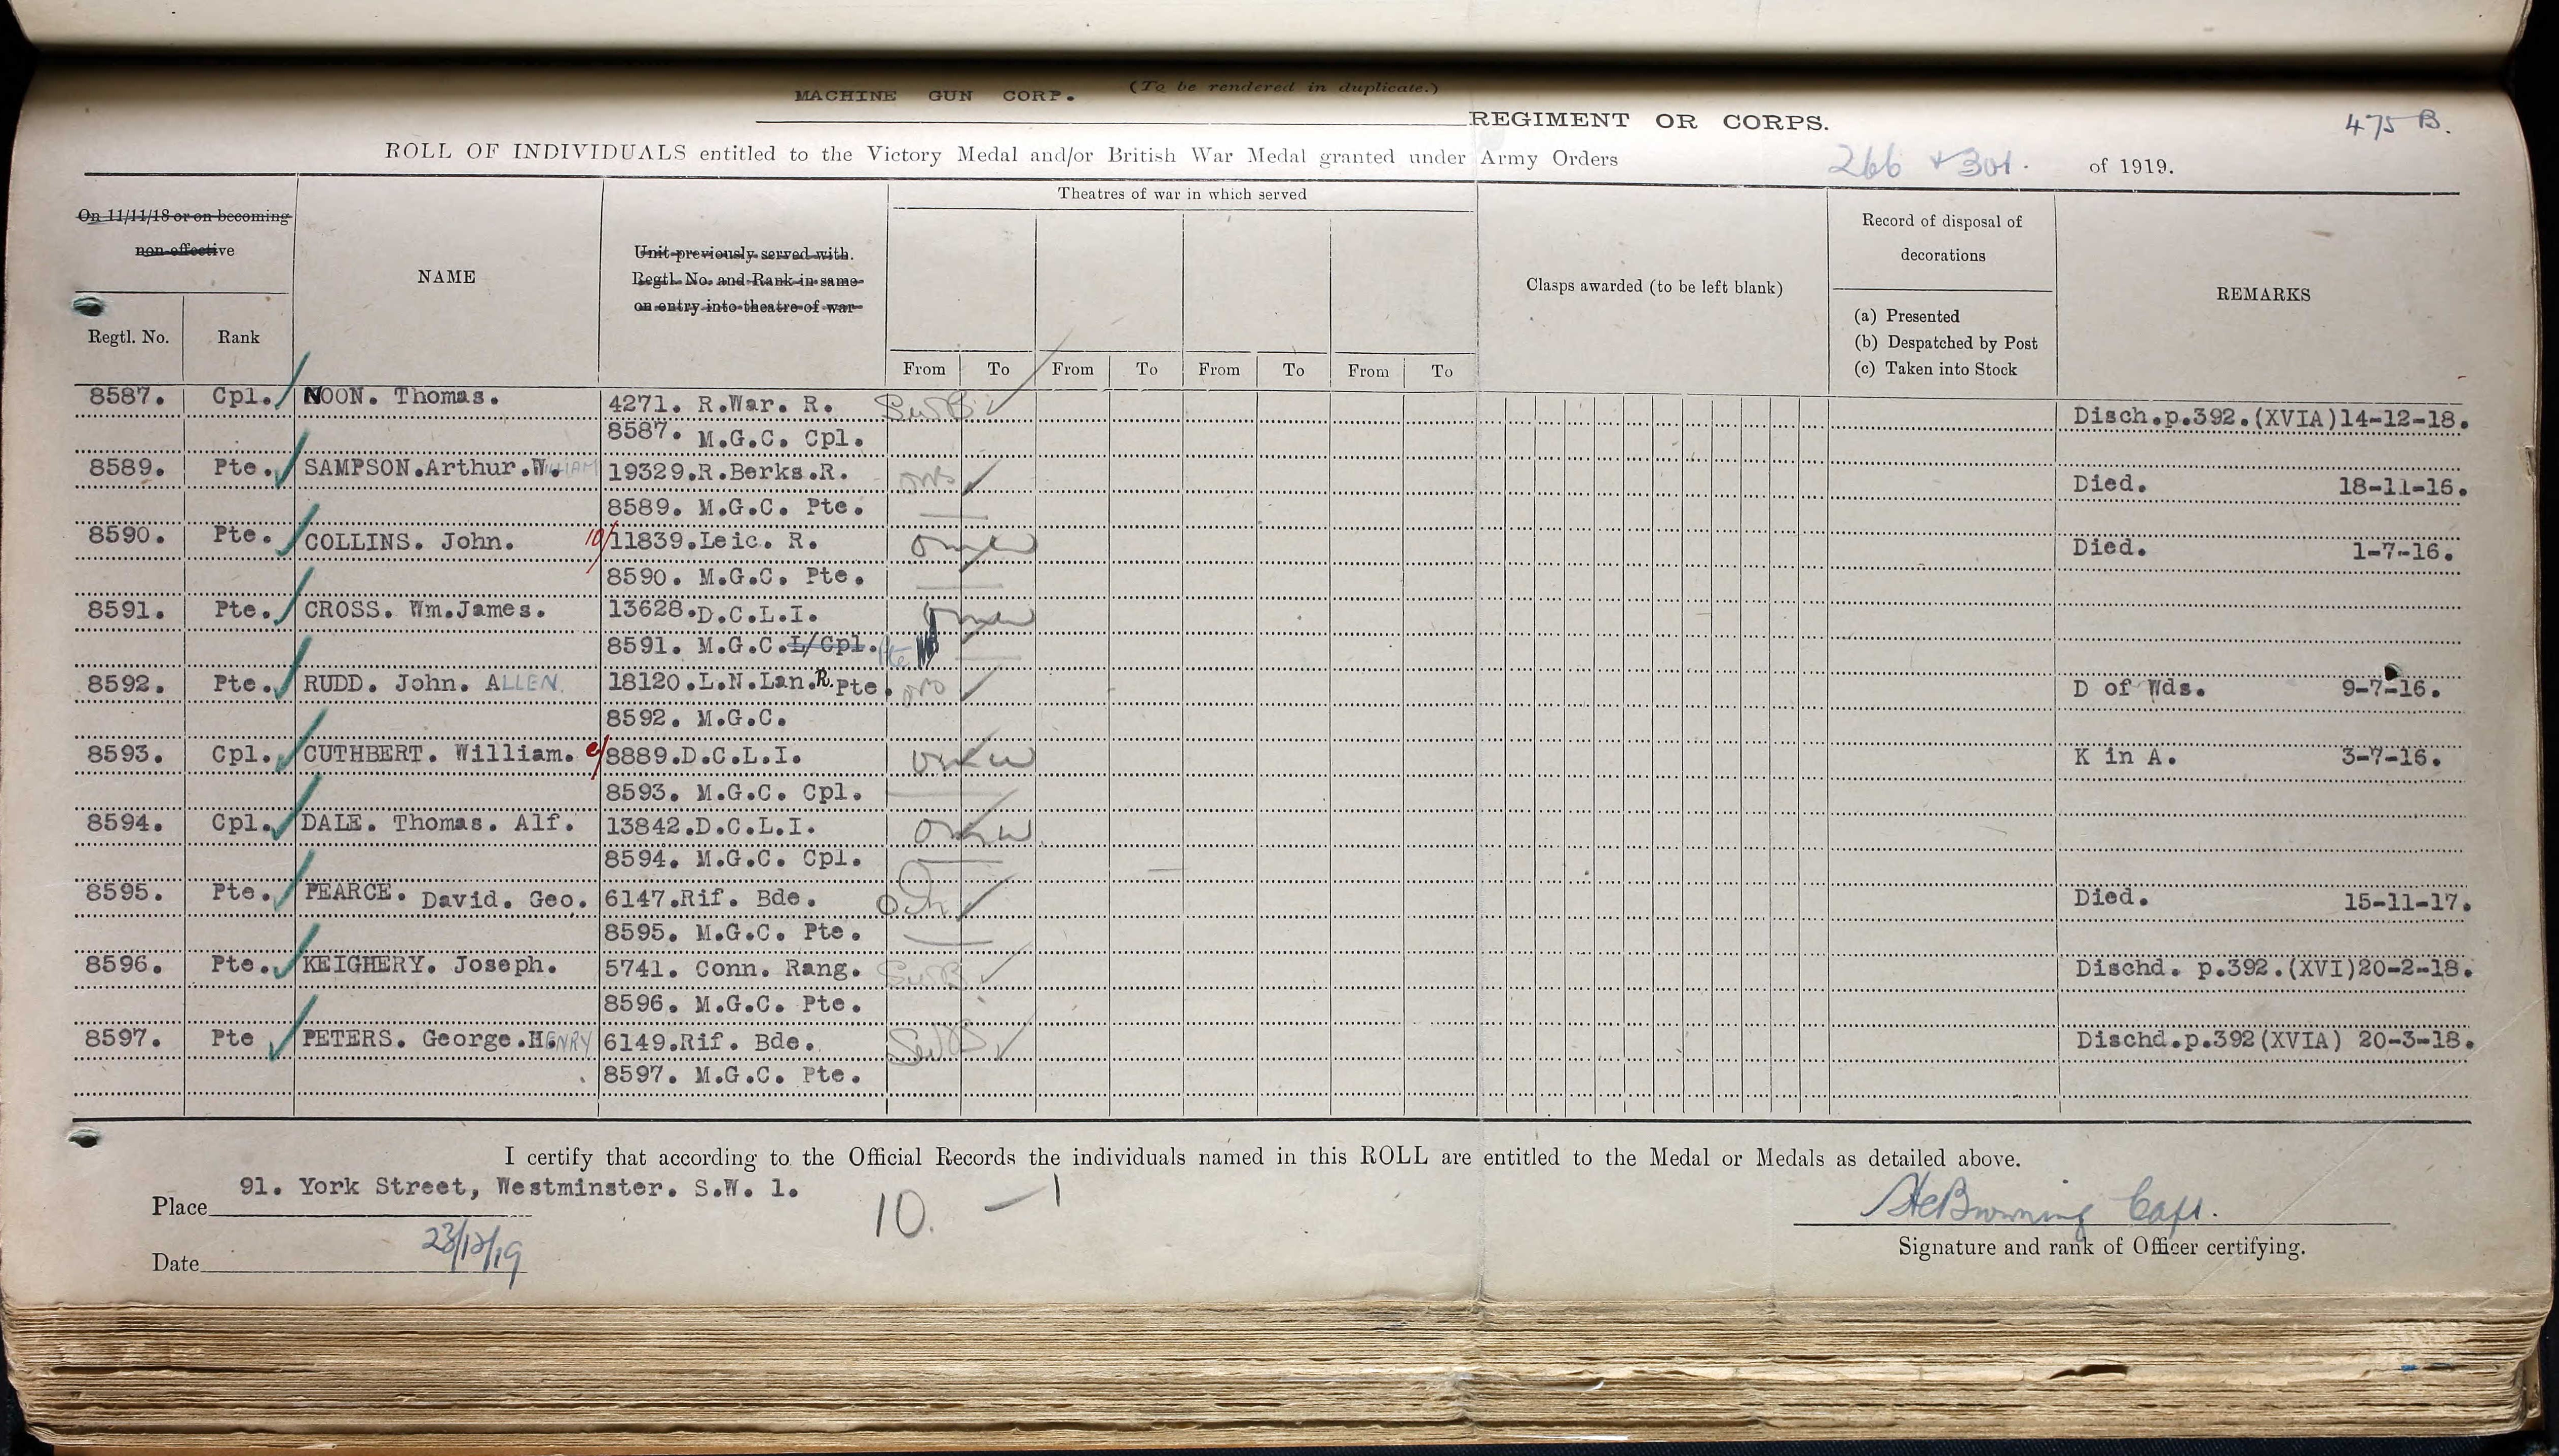 MACHINE GUN CORP. (To be rendered in duplicate.)
REGIMENT OR CORPS.
475 B.
ROLL OF INDIVIDUALS entitled to the Victory Medal and/or British War Medal granted under Army Orders 266 + 301. of 1919.
On 11/11/18 or on becoming
non-effective
Regtl. No.
Rank
NAME
Unit previously served with.
Regtl. No. and Rank in same
on entry into theatre of war
Theatres of war in which served
From To From To From To From To
Clasps awarded (to be left blank)
Record of disposal of
decorations
(a) Presented
(b) Despatched by Post
(c) Taken into Stock
REMARKS
8587. Cpl. NOON. Thomas. 4271. R.War. R. SWB Disch.p.392.(XVIA)14-12-18.
8587. M.G.C. Cpl.
8589. Pte. SAMPSON.Arthur.WILLIAM 19329.R.Berks.R. Died. 18-11-16.
8589. M.G.C. Pte.
8590. Pte. COLLINS. John. 10/11839.Leic. R. Died. 1-7-16.
8590. M.G.C. Pte.
8591. Pte. CROSS. Wm.James. 13628.D.C.L.I.
8591. M.G.C.L/Cpl. Pte
8592. Pte. RUDD. John. ALLEN. 18120.L.N.Lan.R.Pte. D of Wds. 9-7-16.
8592. M.G.C.
8593. Cpl. CUTHBERT. William. 8889.D.C.L.I. K in A. 3-7-16.
8593. M.G.C. Cpl.
8594. Cpl. DALE. Thomas. Alf. 13842.D.C.L.I.
8594. M.G.C. Cpl.
8595. Pte. PEARCE. David. Geo. 6147.Rif. Bde. Died. 15-11-17.
8595. M.G.C. Pte.
8596. Pte. KEIGHERY. Joseph. 5741. Conn. Rang. SWB Dischd. p.392.(XVI)20-2-18.
8596. M.G.C. Pte.
8597. Pte PETERS. George.HENRY 6149.Rif. Bde. SWB Dischd.p.392(XVIA) 20-3-18.
8597. M.G.C. Pte.
I certify that according to the Official Records the individuals named in this ROLL are entitled to the Medal or Medals as detailed above.
Place 91. York Street, Westminster. S.W. 1.
10. — 1
Browning Capt.
Signature and rank of Officer certifying.
Date 23/12/19